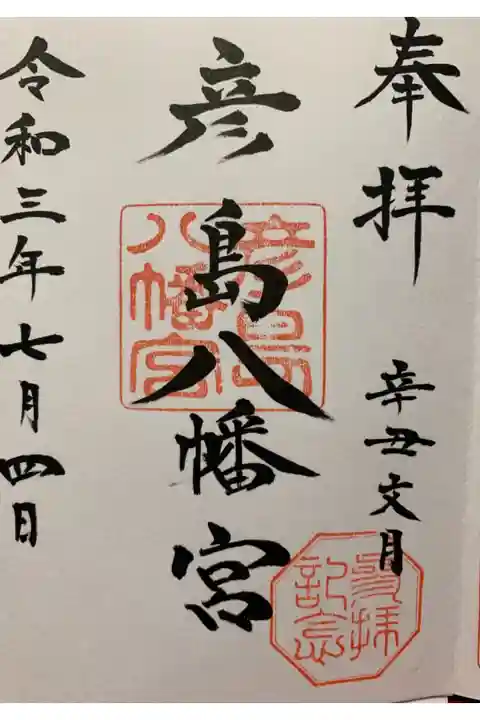 奉拝
辛丑文月
彦島八幡宮
令和三年七月四日
彦島
八幡宮
参拝
記念